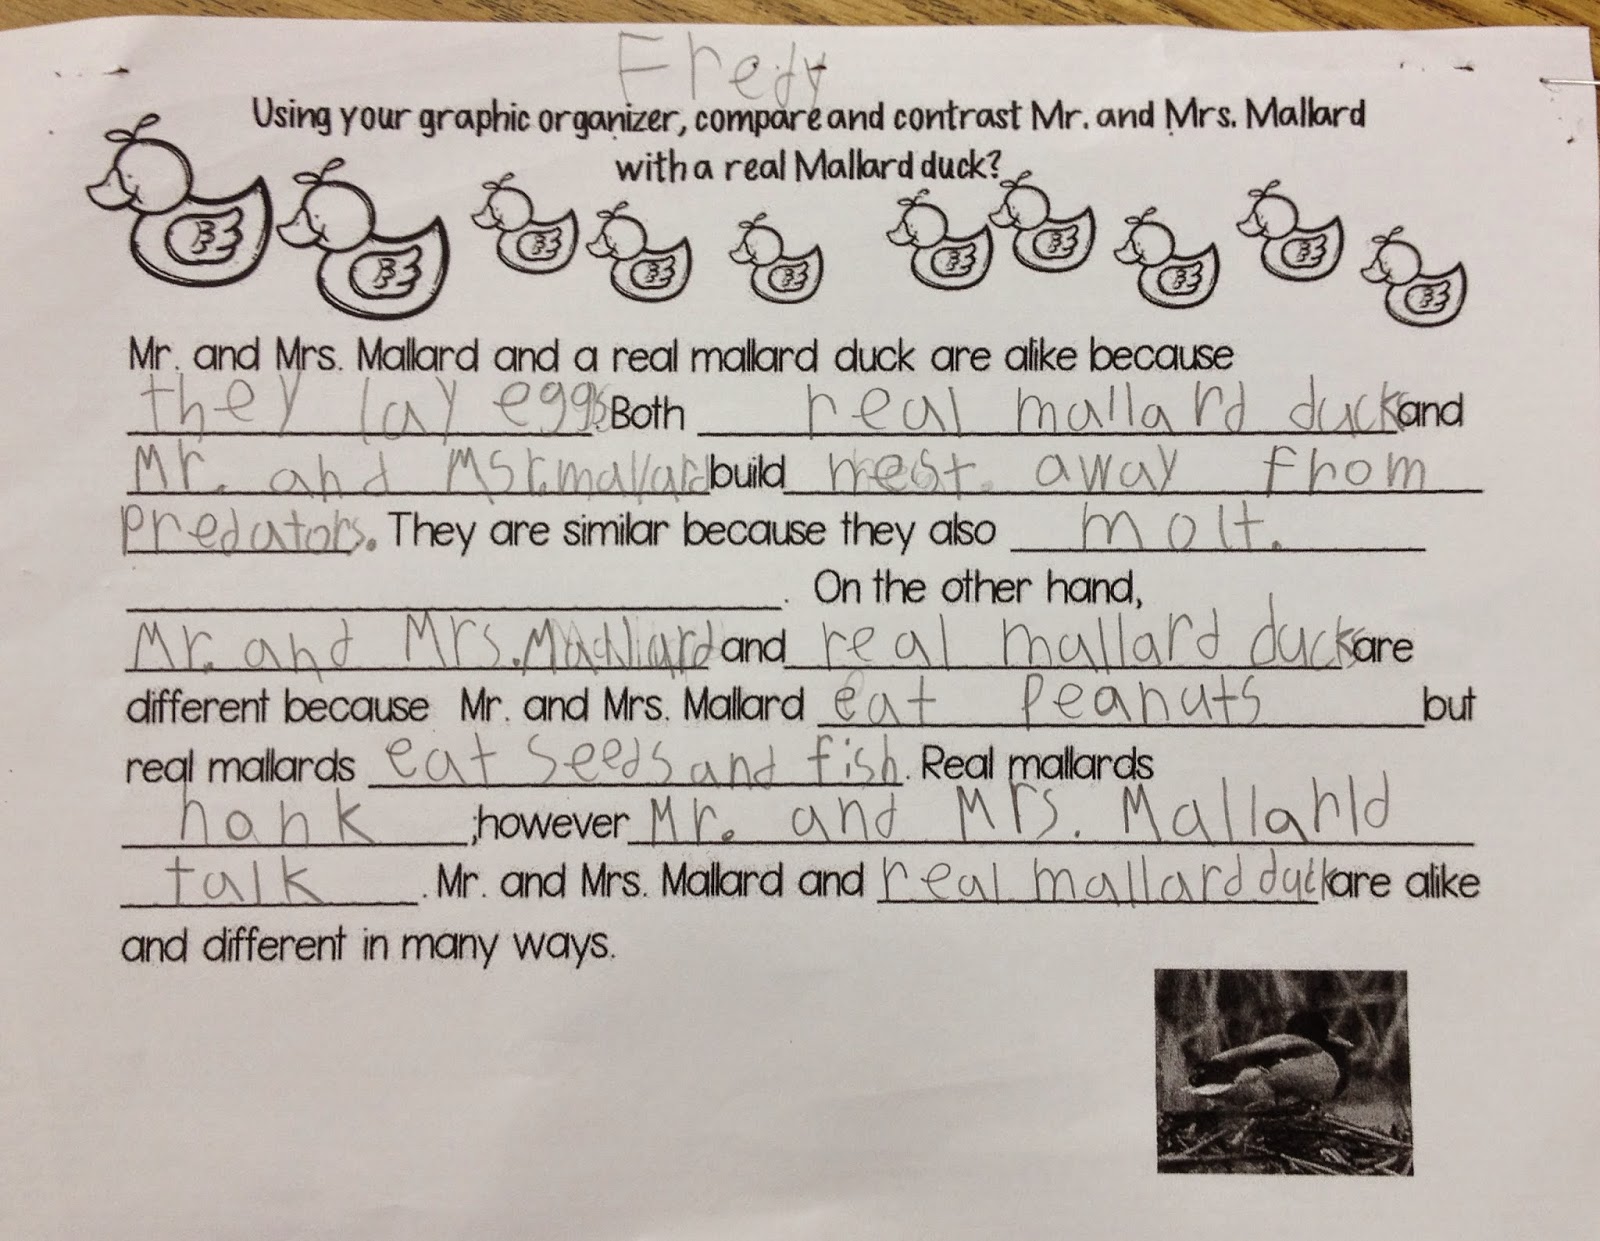 Fredy
Using your graphic organizer, compare and contrast Mr. and Mrs. Mallard
with a real Mallard duck?
Mr. and Mrs. Mallard and a real mallard duck are alike because
they lay eggs. Both real mallard ducks and
Mr. and Msr. mallard build nest away from
predators. They are similar because they also molt.
. On the other hand,
Mr. and Mrs. Mallard and real mallard ducks are
different because Mr. and Mrs. Mallard eat peanuts but
real mallards eat seeds and fish. Real mallards
honk ;however Mr. and Mrs. Mallarld
talk. Mr. and Mrs. Mallard and real mallard duck are alike
and different in many ways.